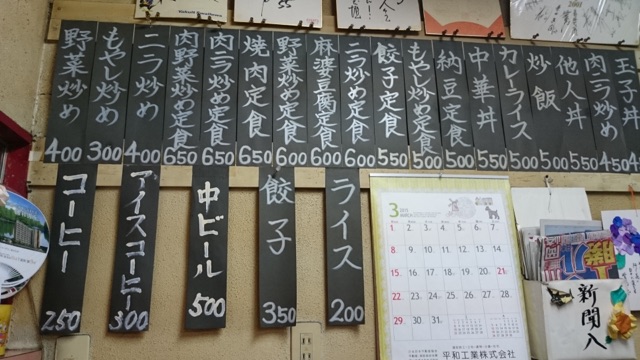 野菜炒め 400
もやし炒め 300
ニラ炒め 400
肉野菜炒め定食 650
肉ニラ炒め定食 650
焼肉定食 650
野菜炒め定食 600
麻婆豆腐定食 600
ニラ炒め定食 600
餃子定食 550
もやし炒め定食 500
納豆定食 500
中華丼 550
カレーライス 500
炒飯 500
他人丼 550
肉ニラ炒め 450
玉子丼
コーヒー 250
アイスコーヒー 300
中ビール 500
餃子 350
ライス 200
3
1 2 3 4 5 6 7
8 9 10 11 12 13 14
15 16 17 18 19 20 21
22 23 24 25 26 27 28
29 30 31
平和工業株式会社
新聞入